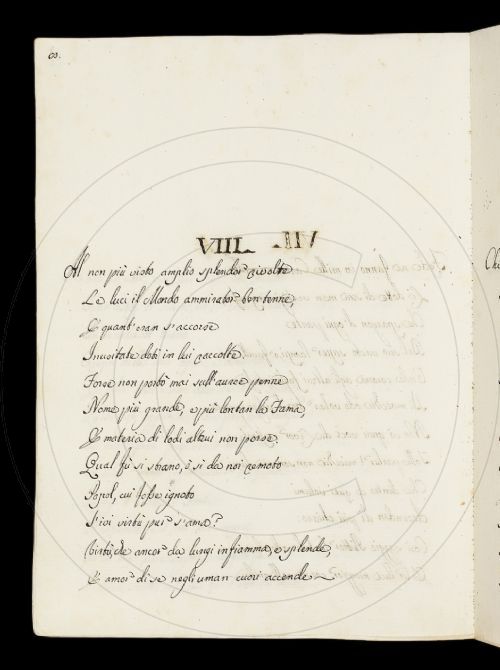 60.
VIII.
Al non più visto amplio splendor rivolte
Le luci il Mondo ammirator ben tenne,
E quant' eran s'accorse
Inusitate doti in lui raccolte
Forse non portò mai sull'auree penne
Nome più grande, e più lontan la Fama,
E materia di lodi altrui non porse.
Qual fù sì strano, è sì da noi remoto
Popol, cui fosse ignoto
S'ivi virtù pur s'ama?
Virtù, che ancor da lungi infiamma, e splende,
E amor di se negli uman cuori accende
Che